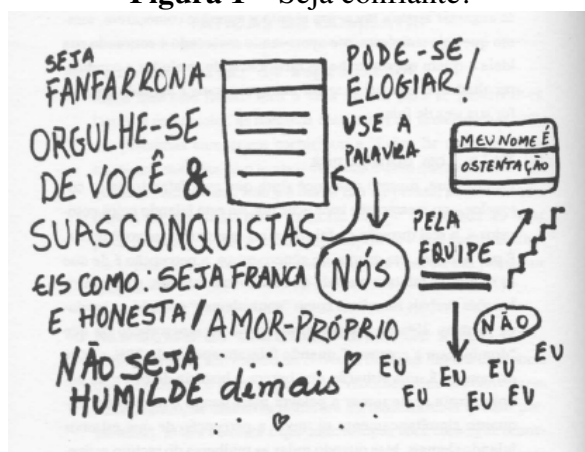 Figura 1 – Seja confiante!
SEJA
FANFARRONA
ORGULHE-SE
DE VOCÊ &
SUAS CONQUISTAS
EIS COMO: SEJA FRANCA
E HONESTA / AMOR-PRÓPRIO
NÃO SEJA
HUMILDE demais
PODE-SE
ELOGIAR!
USE A
PALAVRA
NÓS
MEU NOME É
OSTENTAÇÃO
PELA
EQUIPE
NÃO
EU EU EU EU
EU EU EU